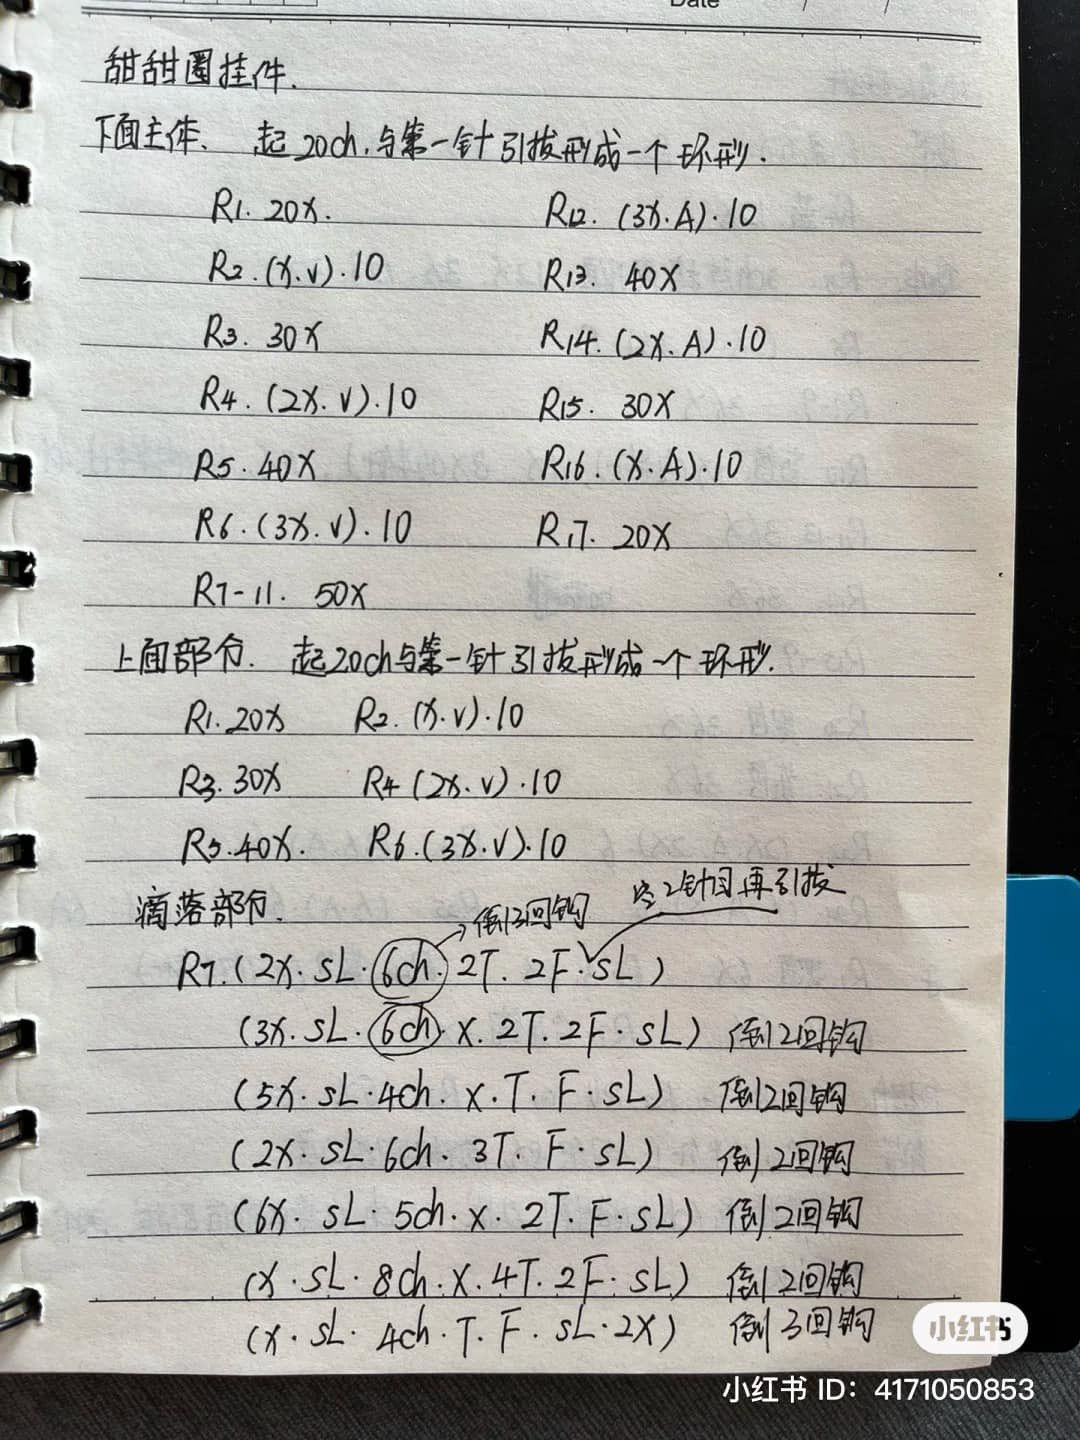 Date / /
甜甜圈挂件.
下面主体、 起20ch,与第一针引拔形成一个环形.
R1. 20X. R12. (3X.A).10
R2.(X.V).10 R13. 40X
R3. 30X R14.(2X.A).10
R4.(2X.V).10 R15. 30X
R5.40X R16.(X.A).10
R6.(3X.V).10 R17. 20X
R7-11. 50X
上面部分. 起20ch与第一针引拔形成一个环形.
R1.20X R2.(X.V).10
R3.30X R4(2X.V).10
R5.40X. R6.(3X.V).10
滴落部分. 倒3回钩 空2针目再引拔
R7.(2X.SL.6ch.2T.2F.SL)
(3X.SL.6ch.X.2T.2F.SL) 倒2回钩
(5X.SL.4ch.X.T.F.SL) 倒2回钩
(2X.SL.6ch.3T.F.SL) 倒2回钩
(6X.SL.5ch.X.2T.F.SL) 倒2回钩
(X.SL.8ch.X.4T.2F.SL) 倒2回钩
(X.SL.4ch.T.F.SL.2X) 倒3回钩
小红书
小红书 ID：4171050853